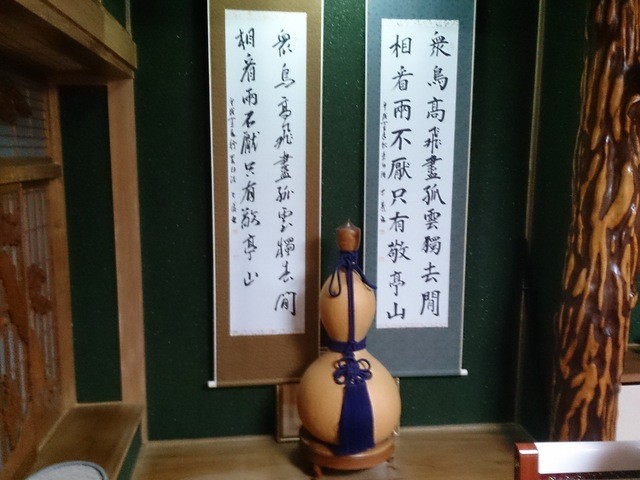 衆鳥高飛盡孤雲獨去閒
相看兩不厭只有敬亭山
衆鳥高飛盡孤雲獨去閒
相看兩不厭只有敬亭山